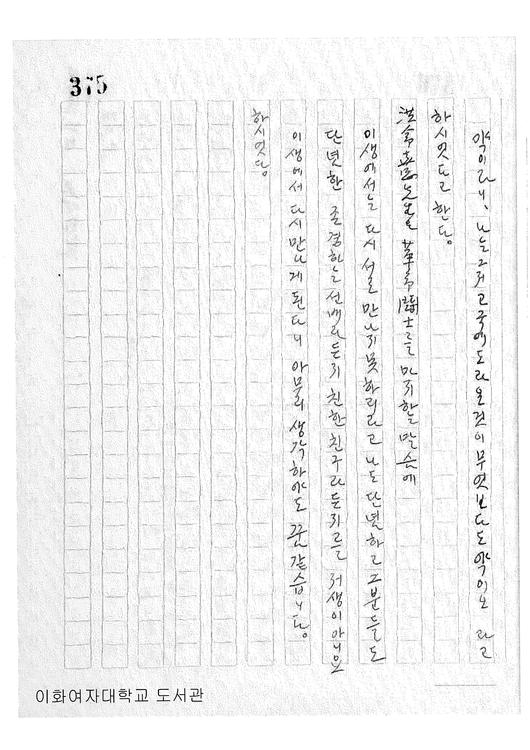 375
약이라니, 나는 그저 고국에 도라온 것이 무엇보다도 약이오 라고
하시엿다고 한다.
洪命憙先生은 革命鬪士를 마지한 말슴에
이생에서는 다시 서로 만나지 못하리라고 나도 단념하고 그분들도
단념한 존경하는 선배라든지 친한 친구라든지를 저생이 아니요
이생에서 다시 만나게 된다니 아무리 생각하야도 꿈같습니다.
하시엿다.
이화여자대학교 도서관